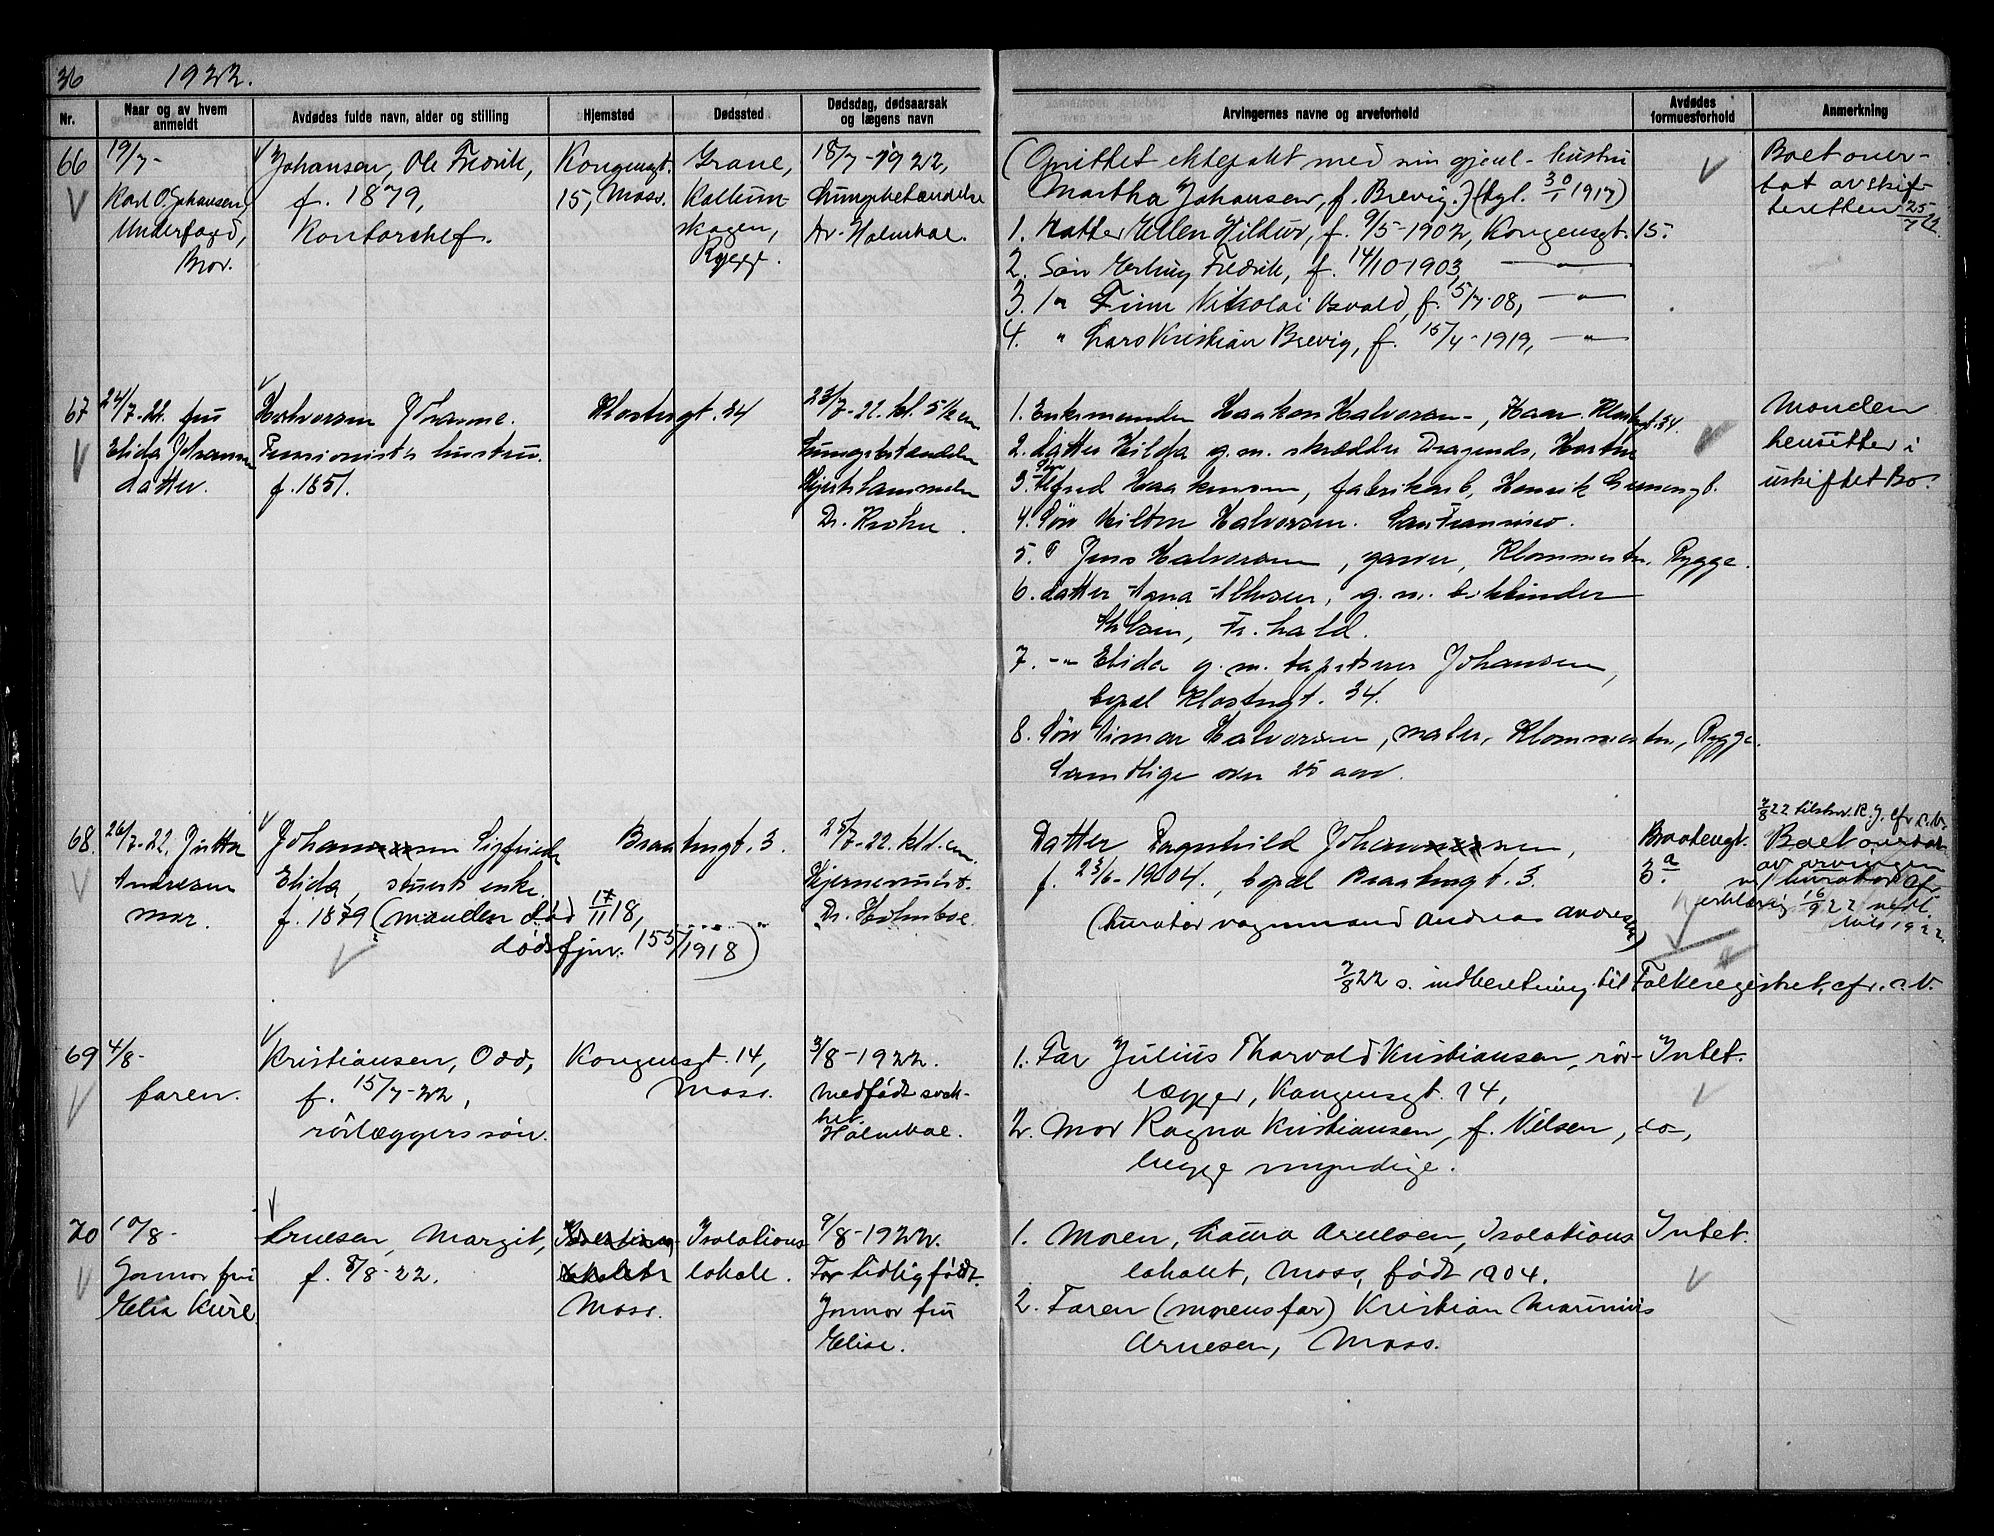 36 1922.
Nr.
Naar og av hvem anmeldt
Avdødes fulde navn, alder og stilling
Hjemsted
Dødssted
Dødsdag, dødsaarsak og lægens navn
Arvingernes navne og arveforhold
Avdødes formuesforhold
Anmerkning
66
19/7-
Karl O. Johansen,
Underfogd,
Bror.
Johansen, Ole Fredrik,
f. 1879,
Kontorchef.
Kongensgt.
15, Moss.
Grane,
Kallum-
skogen,
Rygge.
18/7-1922,
Lungebetændelse
Dr. Holmboe.
(Oprittet ektepakt med sin gjenl. hustru
Martha Johansen, f. Brevig.) (tgl. 30/1 1917)
1. Datter Ellen Hildur, f. 9/5-1902, Kongensgt. 15.
2. Søn Erling Fredrik, f. 14/10-1903, — " —
3. " Finn Nikolai Osvald, f. 15/7-08, — " —
4. " Lars Kristian Brevig, f. 15/4-1919, — " —
Boet over-
tat av skif-
teretten 25/7 22.
67
24/7-22. fru
Elida Johansen
datter.
Halvorsen Johanne.
Pensionists hustru.
f. 1851.
Klostergt. 34
23/7-22. kl. 5 1/2 em
Lungebetændelse
Hjertelammelse
Dr. Krohn.
1. Enkemanden Haakon Halvorsen, Klostergt. 34.
2. datter Hilda g. m. skrædder Dragends, Horten
3. Søn Alfred Haakensen, fabrikarb, Henrik Gernersgt.
4. Søn Milton Halvorsen. San Francisco.
5. " Jens Halvorsen, garver, Klommesten, Rygge.
6. datter Agna Nilsen, g. m. bokbinder
Nilsen, Fr.hald.
7. -"- Elida g. m. tapetserer Johansen,
bopæl Klostergt. 34.
8. Søn Einar Halvorsen, maler, Klommesten, Rygge.
Samtlige over 25 aar.
Manden
hensitter i
uskiftet Bo.
68.
26/7-22. Jutta
Andresen
mor.
Johannessen Sigfrida
Elida, stuerts enke.
f. 1879 (manden død 17/11 18,
dødsfjnr. 155/1918)
Braatengt. 3.
25/7-22. kl. 1. em.
Hjernebetænd.
Dr. Holmboe.
Datter Ragnhild Johannessen,
f. 23/6-1904., bopæl Braatengt. 3.
(kurator vognmand Andreas Andresen)
7/8 22 s. indberetning til Folkeregistret, cfr. s. b.
Braatengt.
3.a
7/8 22 tilskr. R. J. cfr s. b.
Boet overtat
av arvingen
m/ kurator cfr
erklæring 16/9 22 vedl.
bilb 1922.
69
4/8-
faren.
Kristiansen, Odd,
f. 15/7-22,
rørlæggers søn.
Kongensgt. 14,
Moss.
3/8-1922.
Medfødt svak-
het.
Holmboe.
1. Far Julius Thorvald Kristiansen, rør-
lægger, Kongensgt. 14,
2. Mor Ragna Kristiansen, f. Nilsen, do,
begge myndige.
Intet.
70
10/8-
Jormor fru
Elisa Kure
Arnesen, Margit,
f. 8/8-22.
Moss.
Isolations
lokale.
9/8-1922.
For tidlig født.
Jormor fru
Elise.
1. Moren, Laura Arnesen, Isolations
lokalet, Moss, født 1904.
2. Faren (morens far) Kristian Marinius
Arnesen, Moss.
Intet.